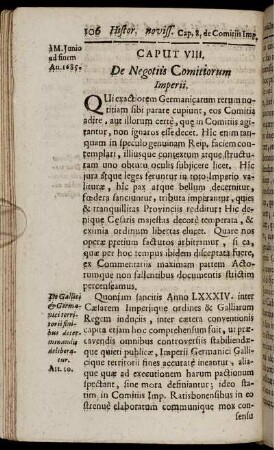 106 Histor. noviss. Cap. 8, de Comitiis Imp.
à M. Junio
ad finem
An. 1685.
CAPUT VIII.
De Negotiis Comitiorum
Imperii.
QUi exactiorem Germanicarum rerum no-
titiam sibi parare cupiunt, eos Comitia
adire, aut illorum certè, quæ in Comitiis agi-
tantur, non ignaros esse decet. Hîc enim tan-
quam in speculo genuinam Reip. faciem con-
templari, illiusque connexum atque structu-
ram uno obtutu oculis subjicere licet. Hîc
jura atque leges feruntur in toto Imperio va-
lituræ, hîc pax atque bellum decernitur,
fœdera sanciuntur, tributa imperantur, quies
& tranquillitas Provinciis redditur: Hîc de-
nique Cæsaris majestas decorè temperata, &
eximia ordinum libertas elucet. Quare nos
operæ pretium facturos arbitramur, si ea,
quæ per hoc tempus ibidem disceptata fuere,
ex Commentariis maximam partem Acto-
rumque non fallentibus documentis strictim
perstringamus.
De Galliæ
& Germa-
niæ terri-
torii fini-
bus deter-
minandis
delibera-
tur.
Art. 10.
Quoniam sancitis Anno LXXXIV. inter
Cæsarem Imperiique ordines & Galliarum
Regem induciis, inter cætera conventionis
capita etiam hoc comprehensum fuit, ut præ-
cavendis omnibus controversiis stabiliendæ-
que quieti publicæ, Imperii Germanici Galli-
cique territorii fines accuratè ineantur, aliæ-
que quæ ad executionem harum pactionum
spectant, sine mora definiantur; ideo sta-
tim, in Comitiis Imp. Ratisbonensibus in eo
strenuè elaboratum communique mox con-
sensu